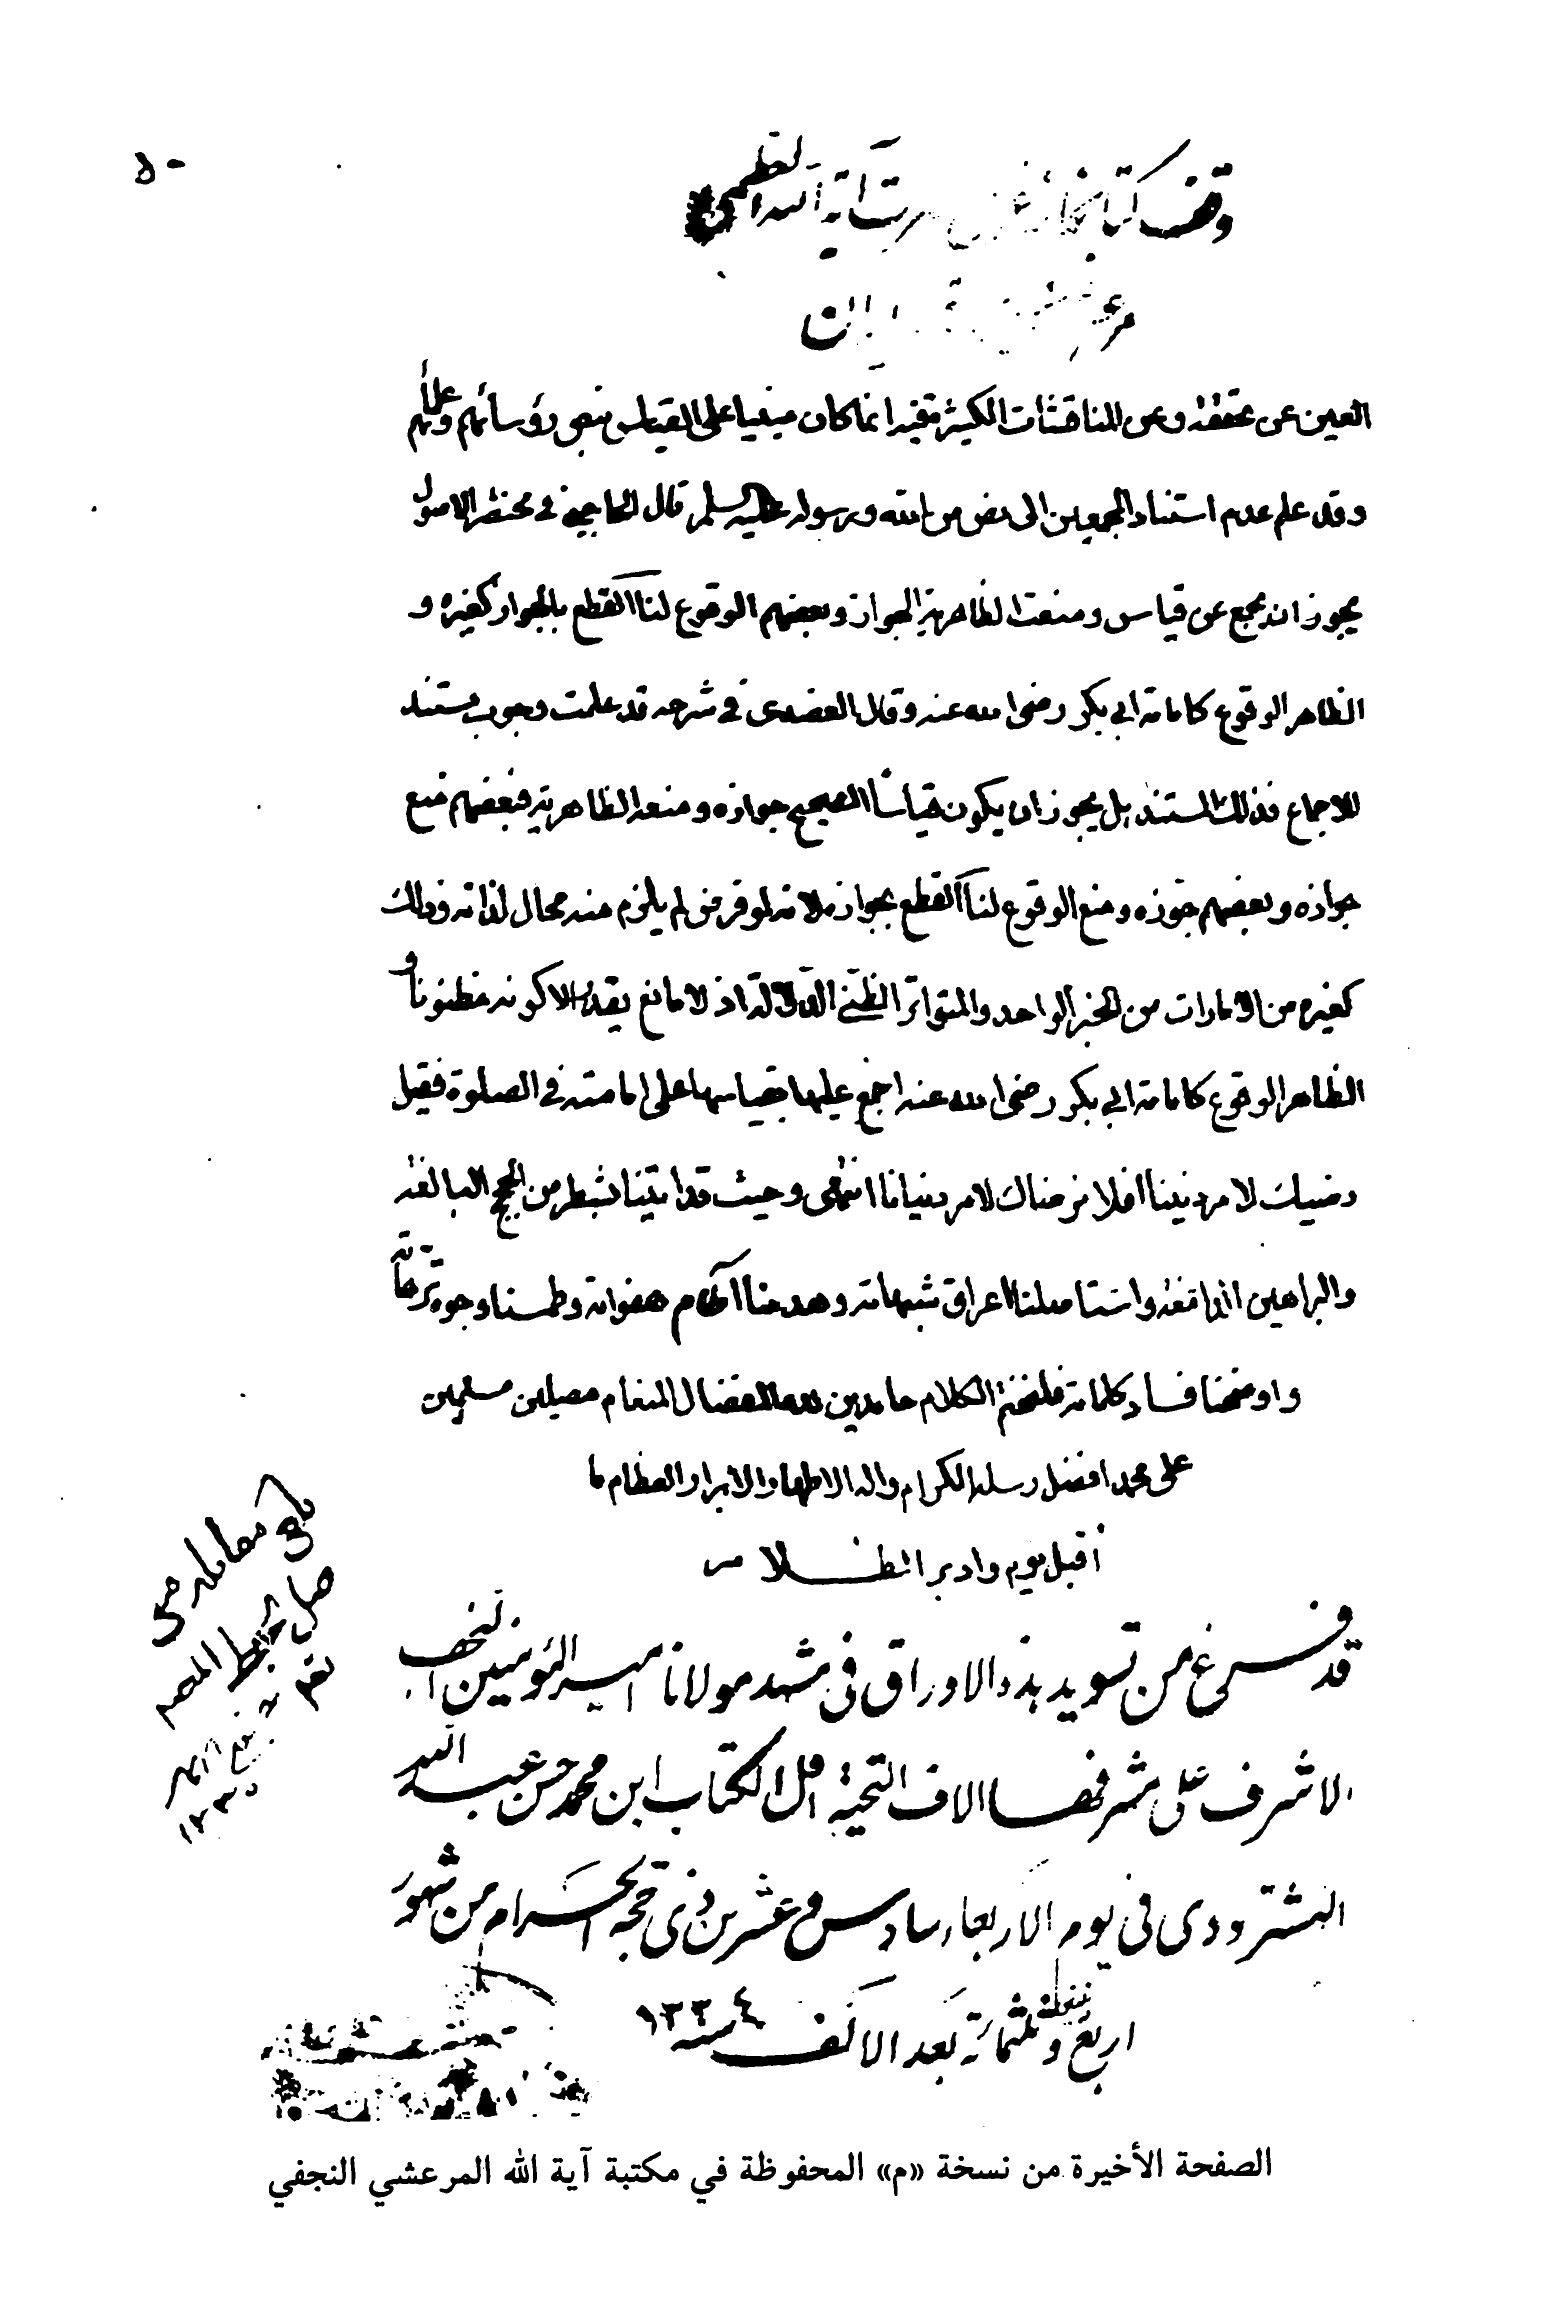 ٥٠
وقف كتابخانه آية الله العظمى
مرعشي
العين عن تحققه وعن المناقشات الكثيرة فيه انما كان مبنيا على القياس بنص رؤسائهم وعلمائهم
وقد علم عدم استناد المجمعين الى نص من الله ورسوله قال الحاجبي في مختصر الاصول
يجوز ان يجمع عن قياس ومنعت الظاهرية الجواز وبعضهم الوقوع لنا القطع بالجواز كغيره و
الظاهر الوقوع كامامة ابي بكر رضي الله عنه وقال العضدي في شرحه قد علمت وجوب مستند
للاجماع فذلك المستند هل يجوز ان يكون قياسًا الصحيح جوازه ومنعه الظاهرية فبعضهم منع
جوازه وبعضهم جوّزه ومنع الوقوع لنا القطع بجوازه لانه لو فرض لم يلزم منه محال لذاته وذلك
كغيره من الامارات من الخبر الواحد والمتواتر الظنّي الدلالة اذ لا مانع يقدر الا كونه مظنونًا و
الظاهر الوقوع كامامة ابي بكر رضي الله عنه اجمع عليها بقياسها على امامته في الصلوة فقيل
رضيك لامر ديننا افلا نرضاك لامر دنيانا انتهى وحيث قد اتينا بشطر من الحجج البالغة
والبراهين الدامغة واستاصلنا اعراق شبهاته وهدمنا آطام هفواته وطمسنا وجوه ترهاته
واوضحنا فساد كلماته فلنختم الكلام حامدين لله المفضال المنعام مصلين مسلمين
على محمد افضل رسله الكرام واله الاطهار الابرار العظام ما
أقبل يوم وادبر الظلام
قد فرغ من تسويد هذه الاوراق في مشهد مولانا امير المؤمنين النجف
الاشرف على مشرفها الاف التحية اقل الكتاب ابن محمد حسن عبد الله
الهشترودى في يوم الاربعاء سادس وعشرين ذي حجة الحرام من شهور
سنة اربع وثلثمائة بعد الالف سنه ١٣٣٤
بلغ مقابلة من
اصل بخط المصنف
الصفحة الأخيرة من نسخة «م» المحفوظة في مكتبة آية الله المرعشي النجفي